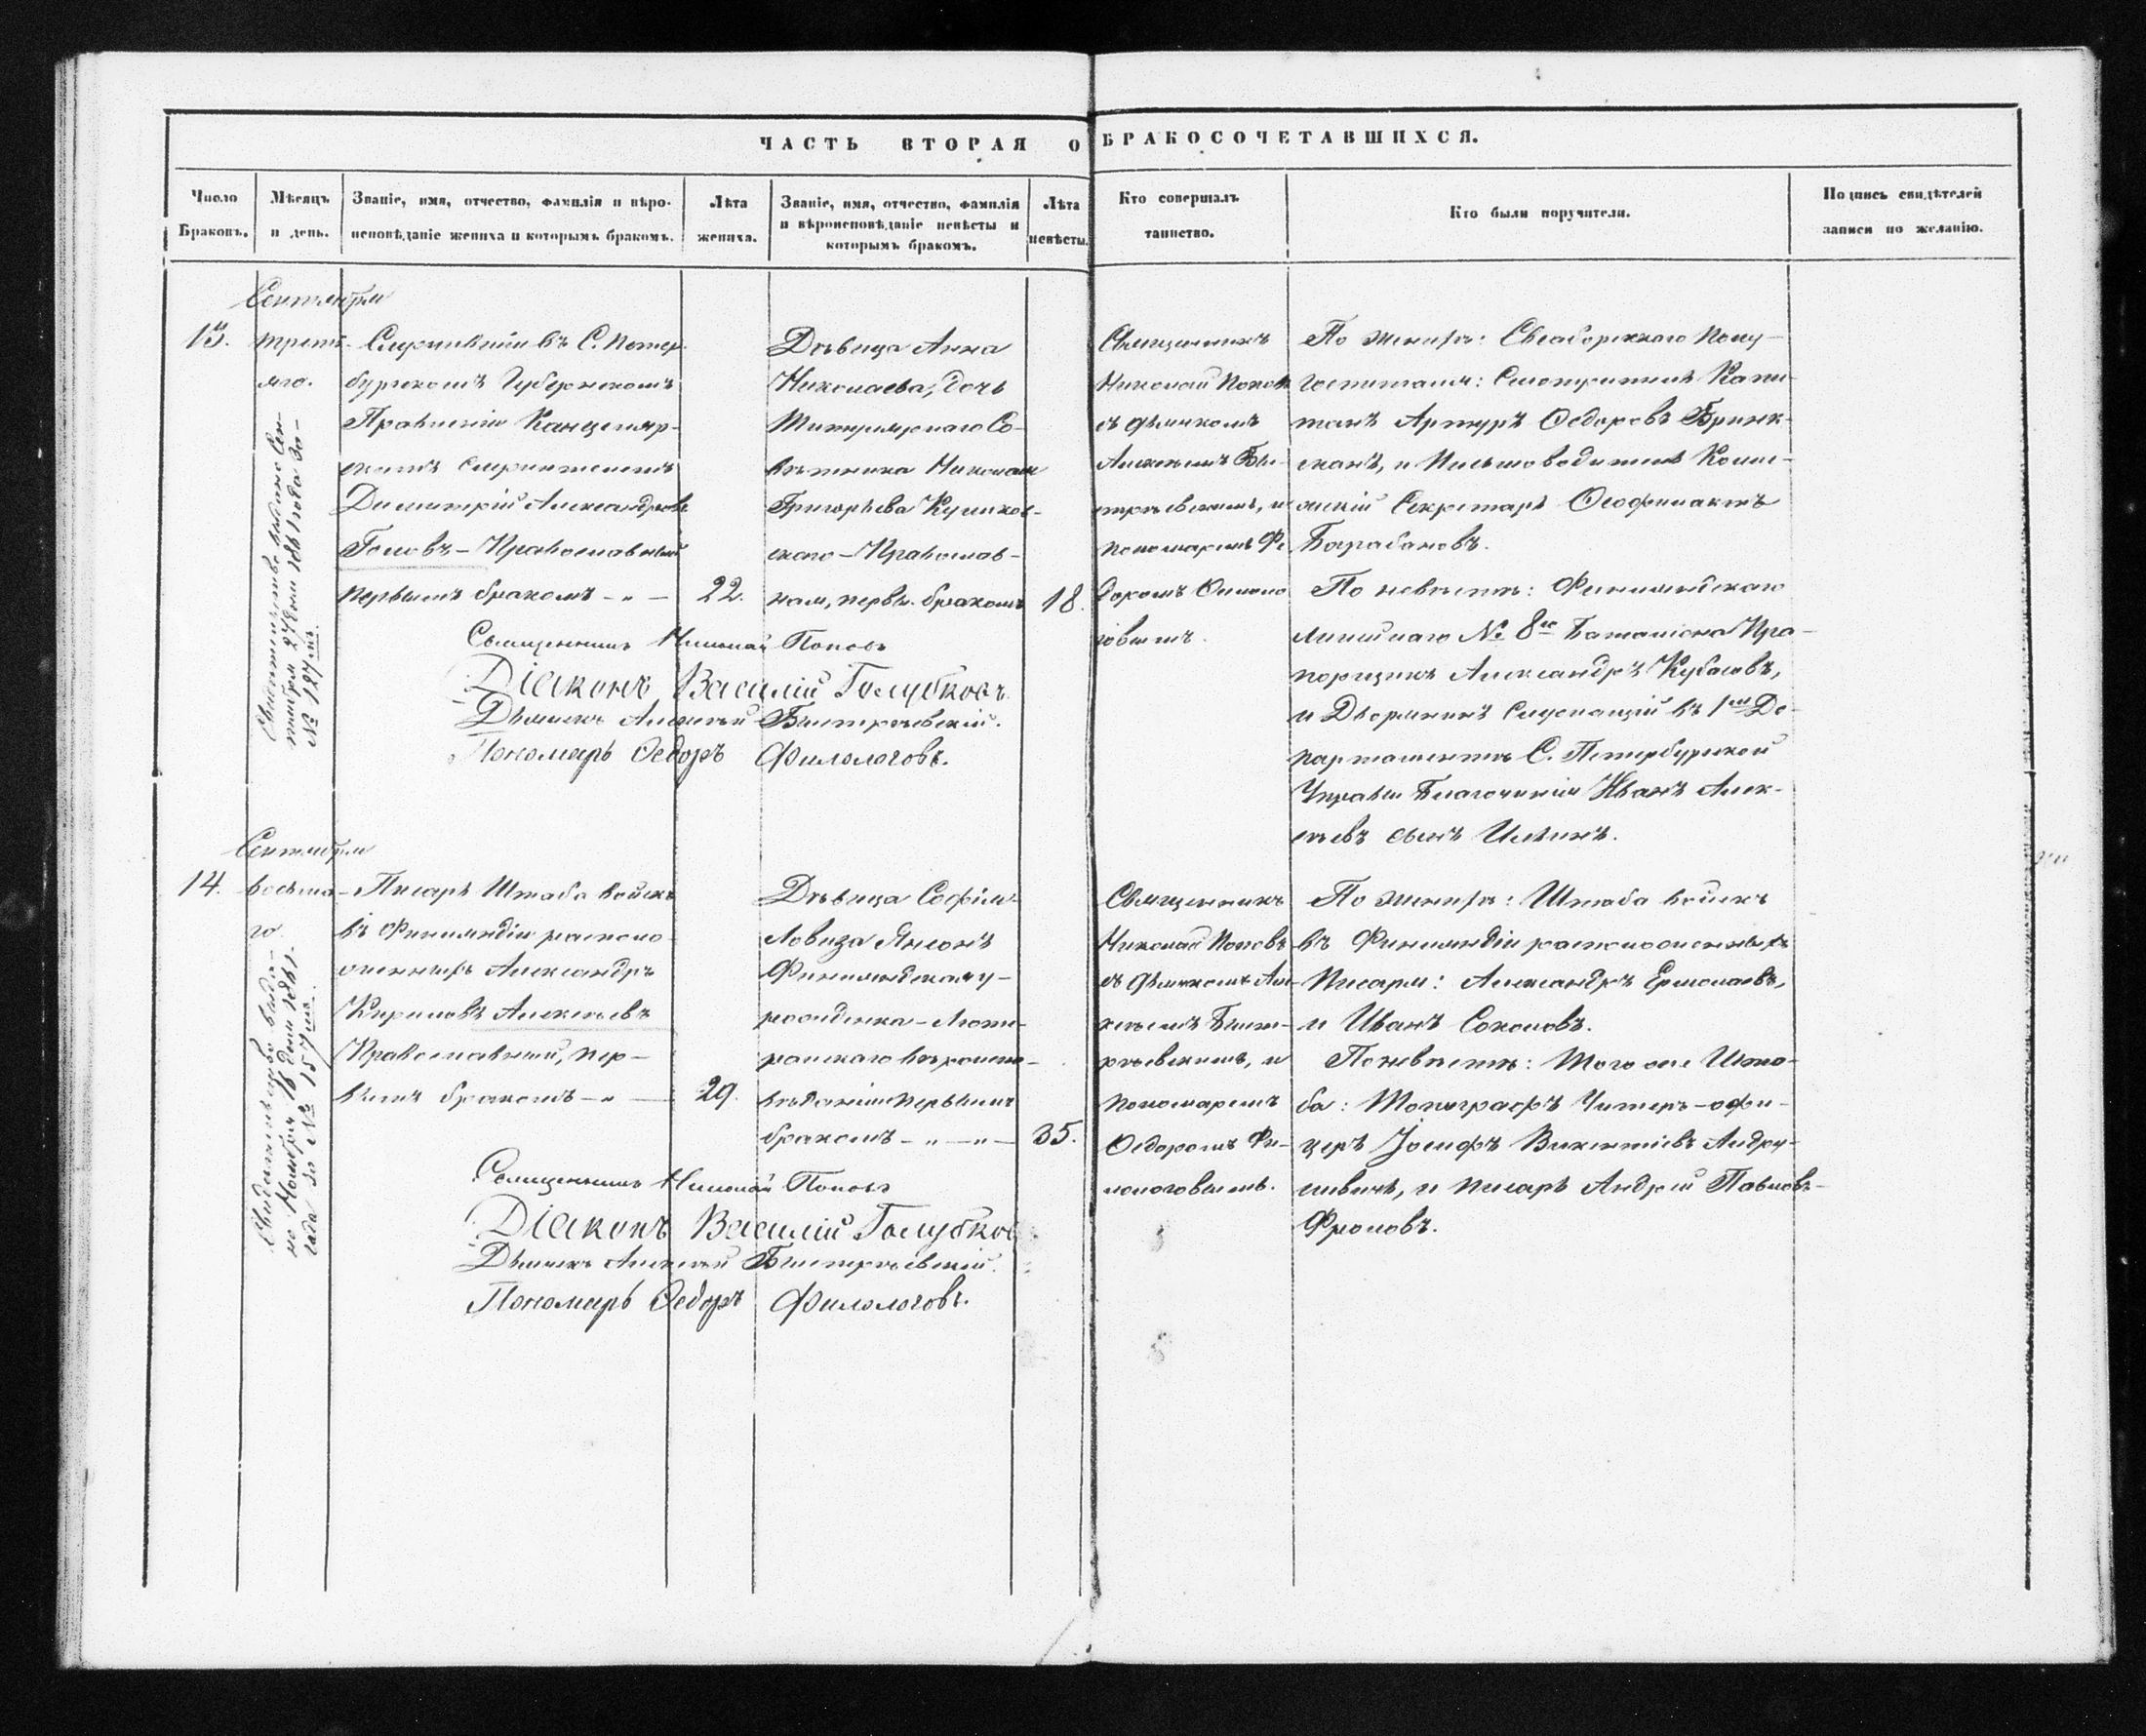 ЧАСТЬ ВТОРАЯ О БРАКОСОЧЕТАВШИХСЯ.
Число Браковъ.
Мѣсяцъ и день.
Званіе, имя, отчество, фамилія и вѣро-
исповѣданіе жениха и которымъ бракомъ.
Лѣта жениха.
Званіе, имя, отчество, фамилія
и вѣроисповѣданіе невѣсты и
которымъ бракомъ.
Лѣта невѣсты.
Кто совершалъ
таинство.
Кто были поручители.
Подпись свидѣтелей
записи по желанію.
Сентября
13.
треть-
яго.
Служившій въ С. Петер-
бургскомъ Губернскомъ
Правленіи Канцеляр-
скимъ служителемъ
Димитрій Александровъ
Головъ - Православный
первымъ бракомъ - „ -
22.
Дѣвица Анна
Николаева, дочь
Титулярнаго Со-
вѣтника Николая
Григорьева Куликов-
скаго - Православ-
ная, первы. бракомъ
18.
Священникъ
Николай Поповъ
съ дьячкомъ
Алексѣемъ Бы-
стрѣевскимъ, и
пономаремъ Фе-
доромъ Филоло-
говымъ.
По женихѣ: Свеаборгскаго Полу-
госпиталя: Смотритель Капи-
танъ Артуръ Ѳедоровъ Бринк-
манъ, и Письмоводитель Колле-
жскій Секретарь Ѳеофилактъ
Барабановъ.
По невѣстѣ: Финляндскаго
Линейнаго № 8го Баталіона Пра-
порщикъ Александръ Кубасовъ,
и Дворянинъ Служащій въ 1мъ Де-
партаментѣ С. Петербургской
Управы Благочинія Иванъ Алек-
сѣевъ сынъ Ильинъ.
Свидѣтельство выдано Сен-
тября 27 дня 1861 года за
№ 127мъ.
Священникъ Николай Поповъ
Діаконъ Василій Голубковъ.
Дьячекъ Алексѣй Быстрѣевскій.
Пономарь Ѳедоръ Филологовъ.
Сентября
14.
восьма-
го.
Писарь Штаба войскъ
въ Финляндіи располо-
женныхъ Александръ
Кириловъ Алексѣевъ
Православный, пер-
вымъ бракомъ - „ -
29.
Дѣвица Софія
Ловиза Янсонъ
Финляндская у-
роженка - Люте-
ранскаго вѣроиспо-
вѣданія первымъ
бракомъ - „ - „ -
35.
Священникъ
Николай Поповъ
съ дьячкомъ Але-
ксѣемъ Быст-
рѣевскимъ, и
пономаремъ
Ѳедоромъ Фи-
лологовымъ.
По женихѣ: Штаба войскъ
въ Финляндіи расположенныхъ
Писаря: Александръ Ермолаевъ,
и Иванъ Соколовъ.
По невѣстѣ: Того же Шта-
ба: Топографъ Унтеръ-офи-
церъ Іосифъ Викентіевъ Андру-
шевичъ, и писарь Андрей Павловъ
Фроловъ.
Свидѣтельство выда-
но Ноября 16 дня 1861
года за № 157мъ.
Священникъ Николай Поповъ
Діаконъ Василій Голубков
Дьячекъ Алексѣй Быстрѣевскій.
Пономарь Ѳедоръ Филологовъ.